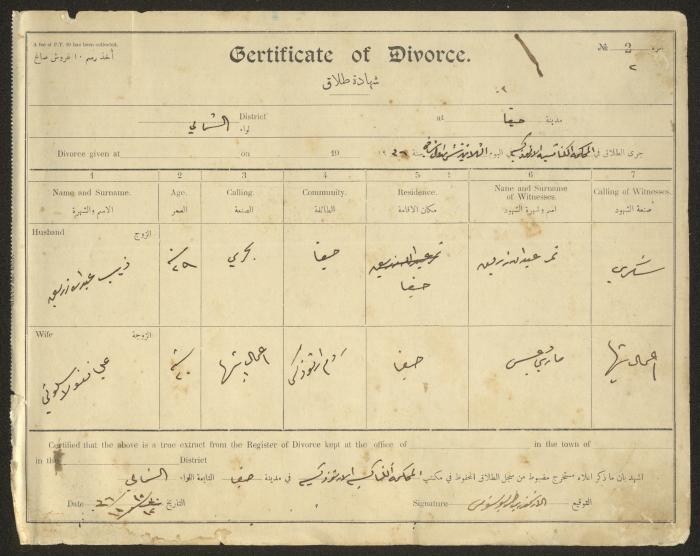 A fee of P.T. 10 has been collected.
أخذ رسم ١٠ غروش صاغ
Certificate of Divorce.
شهادة طلاق
№ 2 نمرة
٢
District لواء الشمالي
at مدينة حيفا
Divorce given at on 19
جرى الطلاق في المحكمة الكنائسية الارثوذكسية في اليوم سنة ١٩٢٦
1 2 3 4 5 6 7
Name and Surname. Age. Calling. Community. Residence. Name and Surname of Witnesses. Calling of Witnesses.
الاسم والشهرة العمر الصنعة الطائفة مكان الاقامة اسم وشهرة الشهود صنعة الشهود
Husband الزوج
ذيب عبدالله ٢٩ سنة بحري حيفا نمر عبدالله
حيفا
Wife الزوجة
٢٠ سنة اعمال بيتها روم ارثوذكس حيفا ماري اعمال بيتها
Certified that the above is a true extract from the Register of Divorce kept at the office of in the town of
in the District
اشهد بان ما ذكر اعلاه مستخرج مضبوط من سجل الطلاق المحفوظ في مكتب المحكمة الكنائسية الارثوذكسية في مدينة حيفا التابعة للواء الشمالي
Date التاريخ
Signature التوقيع